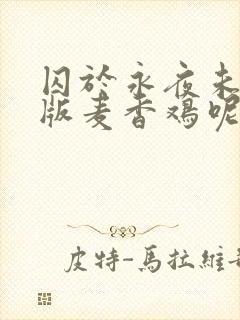 囚於永夜未
版麦香鸡呢
皮特-馬拉維